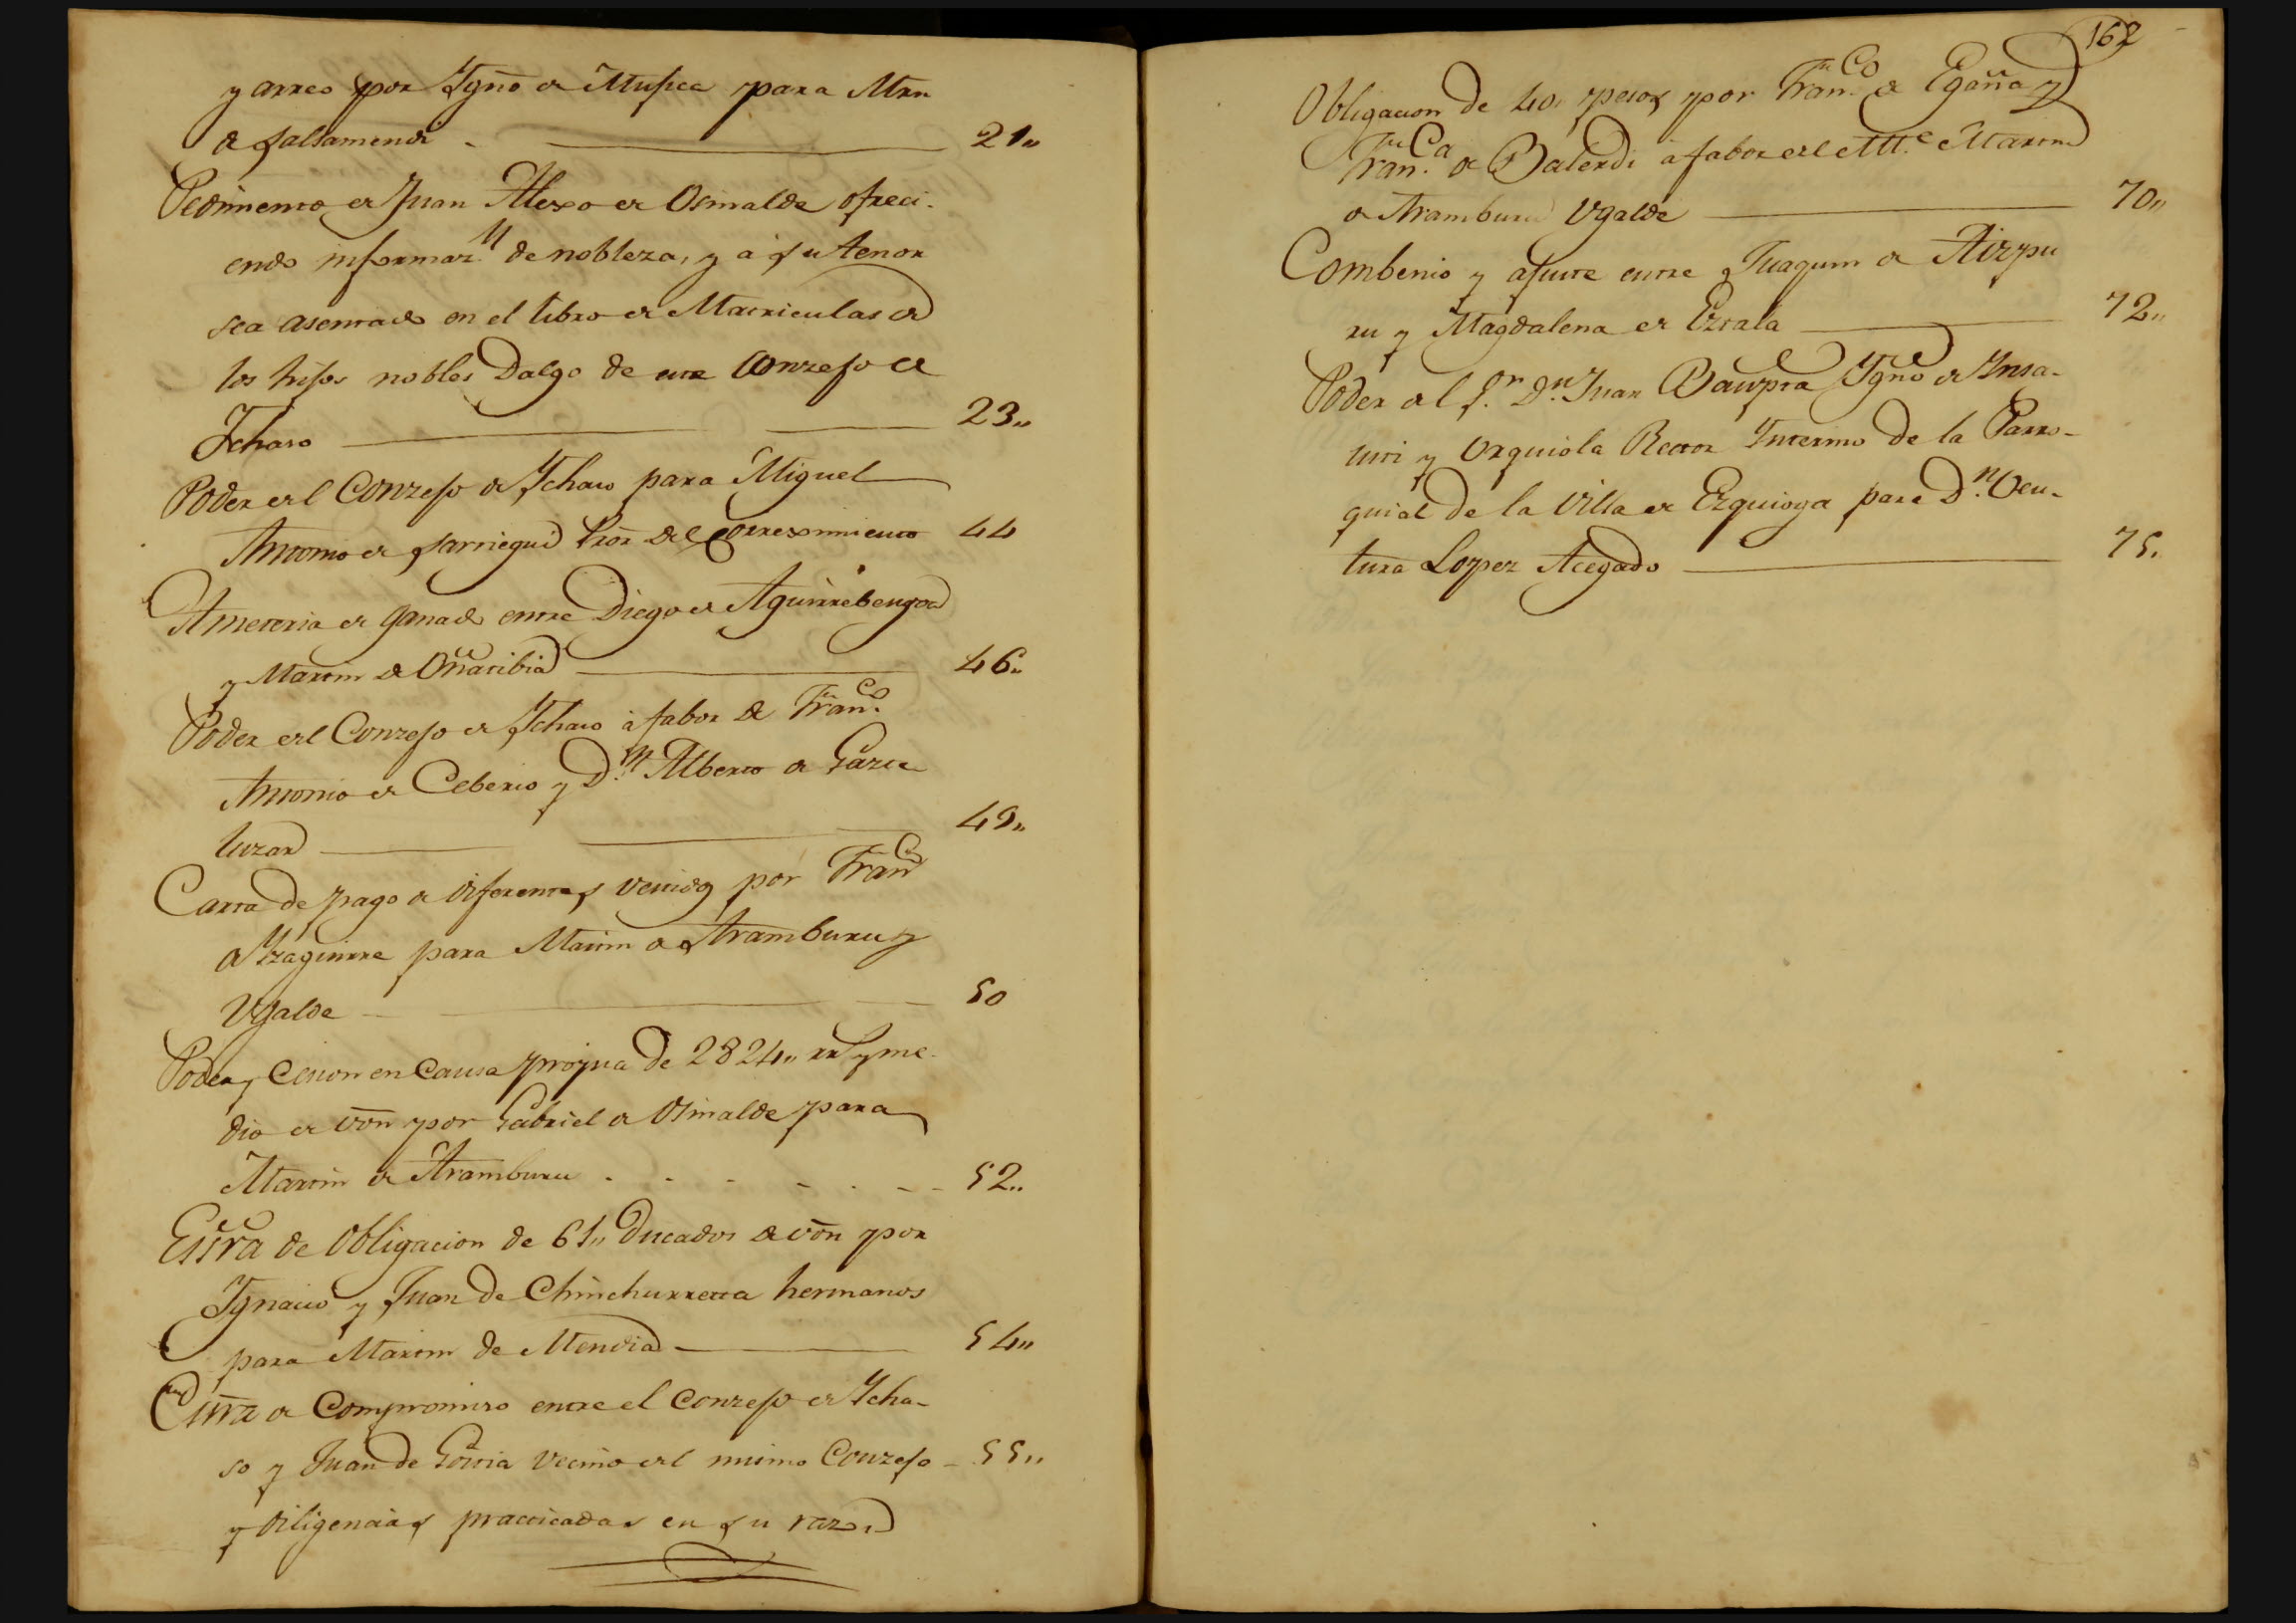 y arreo por Ygno de Musica para Mrn
de salsamendi 21,,
Pedimento de Juan Alexo de Osinalde ofreci-
endo informaz.n de nobleza, y a su tenor
sea asentado en el libro de Matriculas de
los hijos nobles Dalgo de este Conzejo de
Ychaso 23,,
Poder del Conzejo de Ychaso para Miguel
Antonio de Sarriegui Pror del Correximiento 44
Ameteria de ganado entre Diego de Aguirrebengoa
y Martin de Oñatibia 46,,
Poder del Conzejo de Ychaso à fabor de Fran.co
Antonio de Ceberio y D.n Alberto de Gazte
luzar 49,,
Carta de pago de diferentes venidos por Franco
de Yzaguirre para Martin de Aramburu y
Vgalde 50
Poder y Cesion en Causa propria de 2824,, rrs y me-
dio de von por Gabriel de Osinalde para
Martin de Aramburu 52,,
Essra de Obligacion de 61,, Ducados de von por
Ygnacio y Juan de Chinchurreta hermanos
para Martin de Mendia 54,,
Essra de Compromiso entre el Conzejo de Ycha-
so y Juan de Goitia Vecino del mismo Conzejo 55,,
y diligencias practicadas en su razon
162
Obligacion de 40, pesos por Fran.co de Egaña y
Fran.ca de Balerdi à fabor del Mte Martin
de Aramburu Vgalde 70,,
Combenio y ajuste entre Juaquin de Aizpu
ru y Magdalena de Eztala 72,,
Poder del S.r D.n Juan Bauptta Ygno de Insa-
usti y Orquiola Rector Interino de la Parro-
quial de la Villa de Ezquioga para D.n Ven-
tura Lopez Acegado 75,